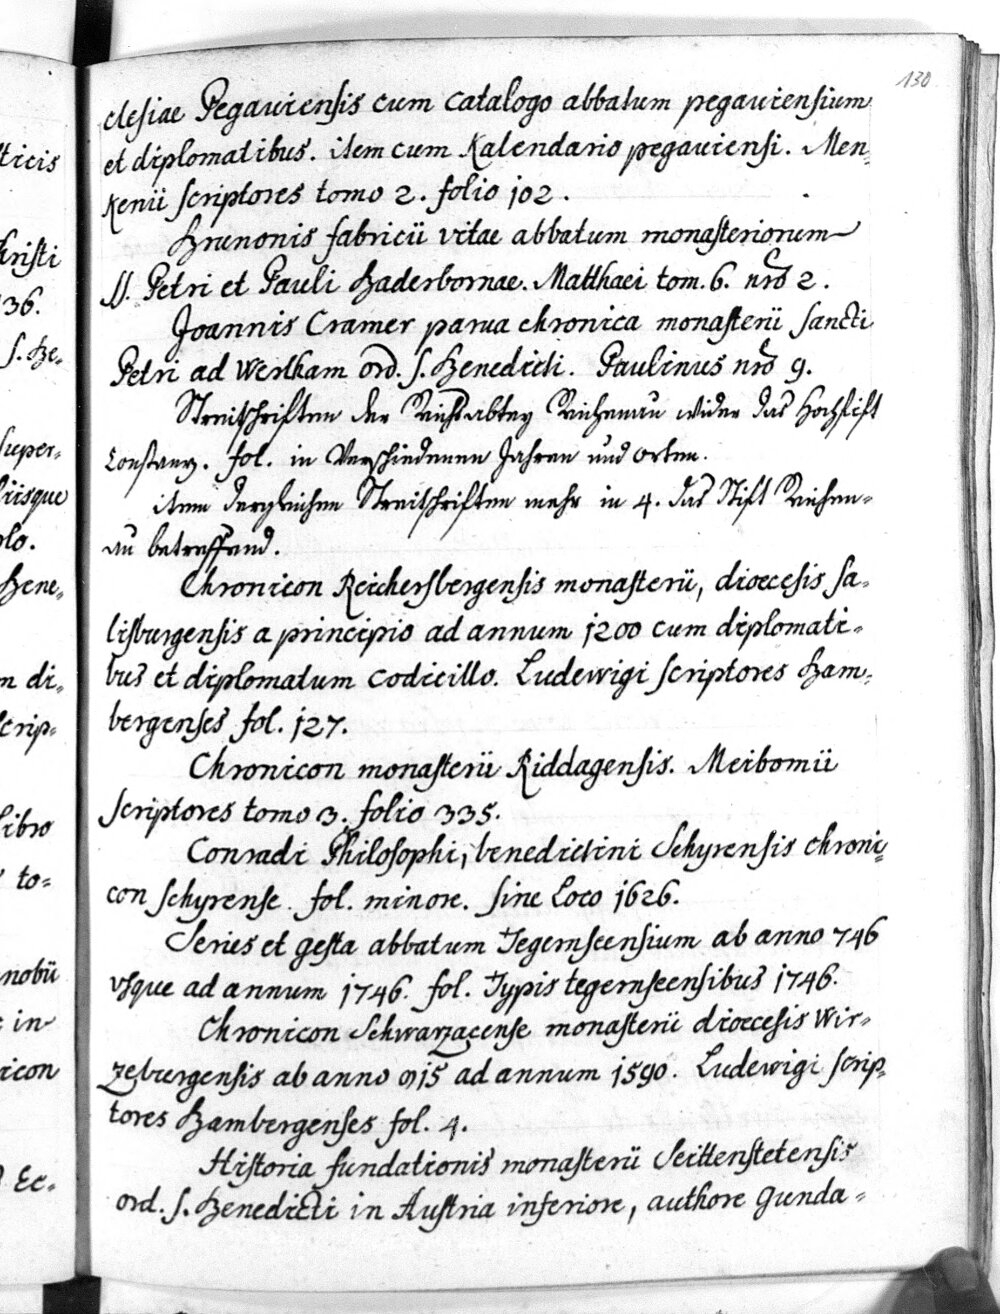 130
clesiae Pegauiensis cum catalogo abbatum pegauiensium
et diplomatibus. item cum Kalendario pegauiensi. Men-
kenii scriptores tomo 2. folio 102.
Brunonis fabricii vitae abbatum monasteriorum
SS. Petri et Pauli Baderbornae. Matthaei tom. 6. nro 2.
Joannis Cramer parua chronica monasterii Sancti
Petri ad Werlham ord. S. Benedicti. Paulinus nro 9.
Streitschriften der Reichsabtey Reichenau wider das Hochstift
Constanz. fol. in verschiedenen Jahren und orten.
item dergleichen Streitschriften mehr in 4. das Stift Reichen=
au betreffend.
Chronicon Reichersbergensis monasterii, dioecesis sa=
lisburgensis a principio ad annum 1200 cum diplomati=
bus et diplomatum codicillo. Ludewigi scriptores Bam=
bergenses fol. 127.
Chronicon monasterii Riddagensis. Meibomii
scriptores tomo 3. folio 335.
Conradi Philosophi, benedictini Schyrensis chroni=
con schyrense fol. minore. sine Loco 1626.
Series et gesta abbatum Tegernseensium ab anno 746
vsque ad annum 1746. fol. Typis tegernseensibus 1746.
Chronicon Schwarzacense monasterii dioecesis Wir=
zeburgensis ab anno 915 ad annum 1590. Ludewigi scrip=
tores Bambergenses fol. 4.
Historia fundationis monasterii Seittenstetensis
ord. S. Benedicti in Austria inferiore, authore Gunda=
ticis
Christi
136.
S. Be=
super=
liisque
lo.
Bene=
m di=
scrip=
libro
to=
nobii
in
icon
Ec=